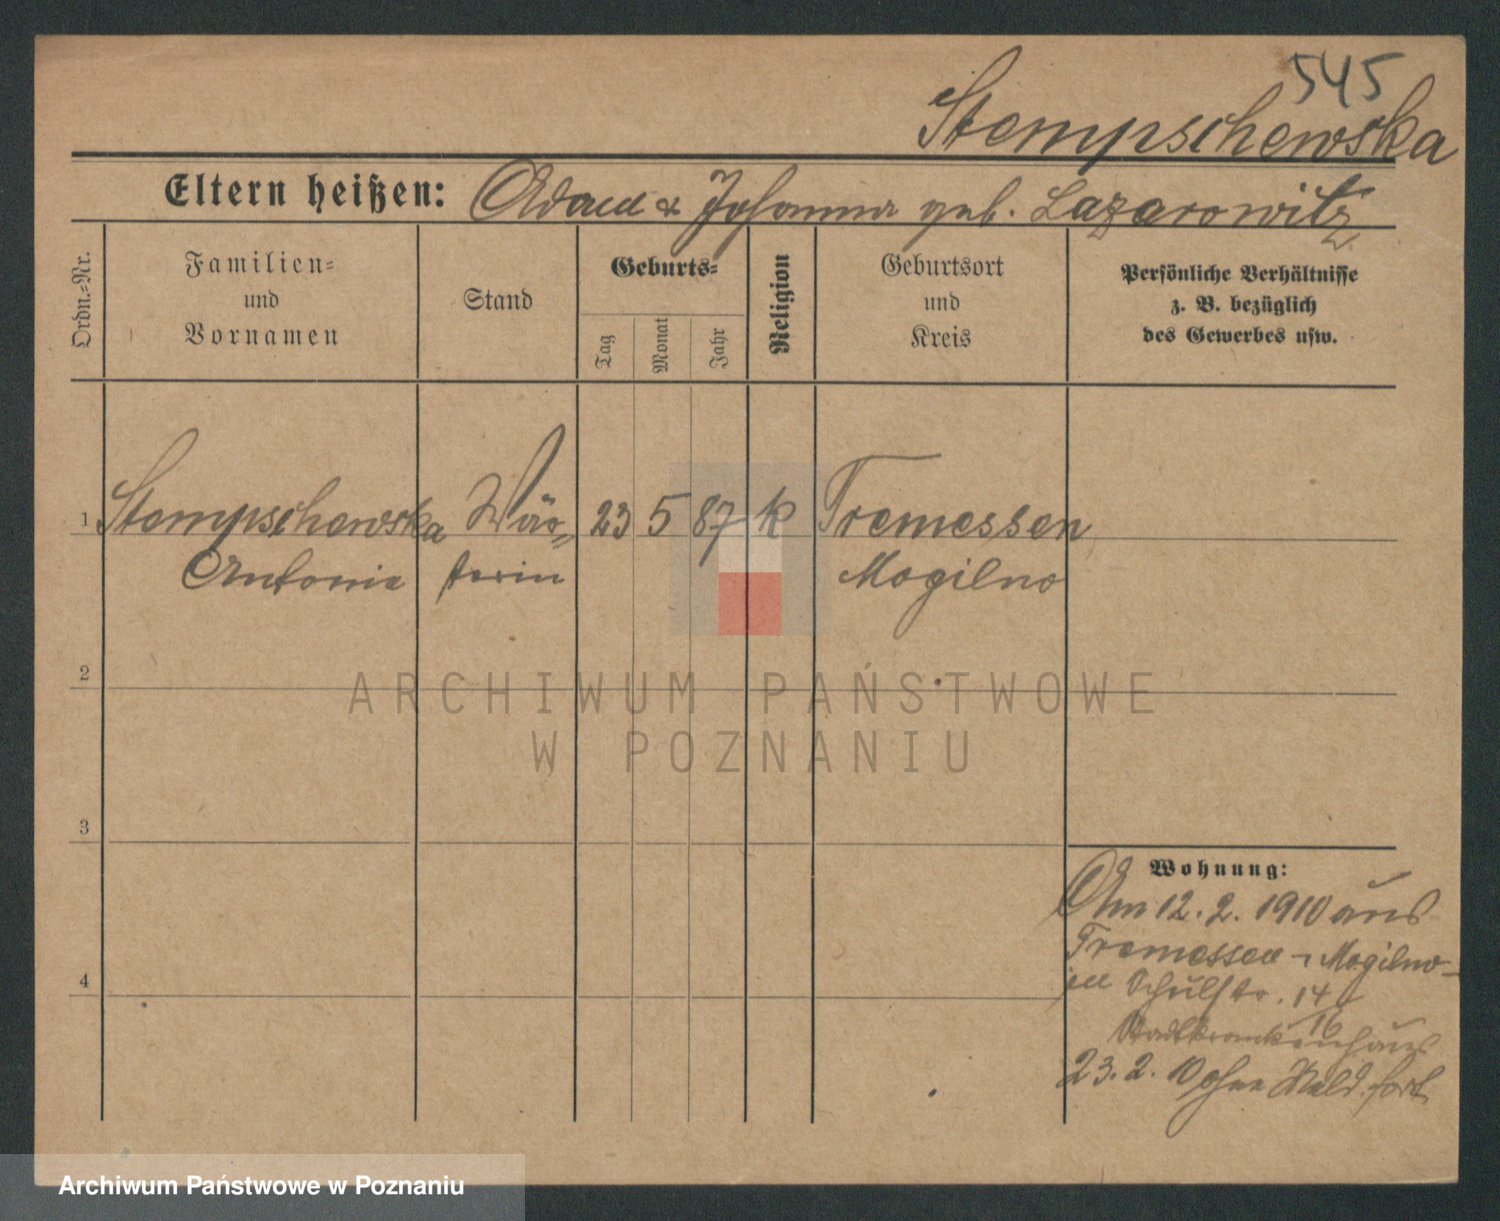 545
Stempschewska
Eltern heißen: Adam & Johanna geb. Lazarowitz
Ordn.=Nr.
Familien=
und
Vornamen
Stand
Geburts=
Tag
Monat
Jahr
Religion
Geburtsort
und
Kreis
Persönliche Verhältnisse
z. B. bezüglich
des Gewerbes usw.
1 Stempschewska Wär= 23 5 87 k Tremessen
Antonie terin Mogilno
2
ARCHIWUM PAŃSTWOWE
W POZNANIU
3
Wohnung:
Am 12. 2. 1910 aus
Tremessen - Mogilno -
in Schulstr. 14/
16
Stadtkrankenhaus
4
23. 2. 10 ohne Meld. fort
Archiwum Państwowe w Poznaniu